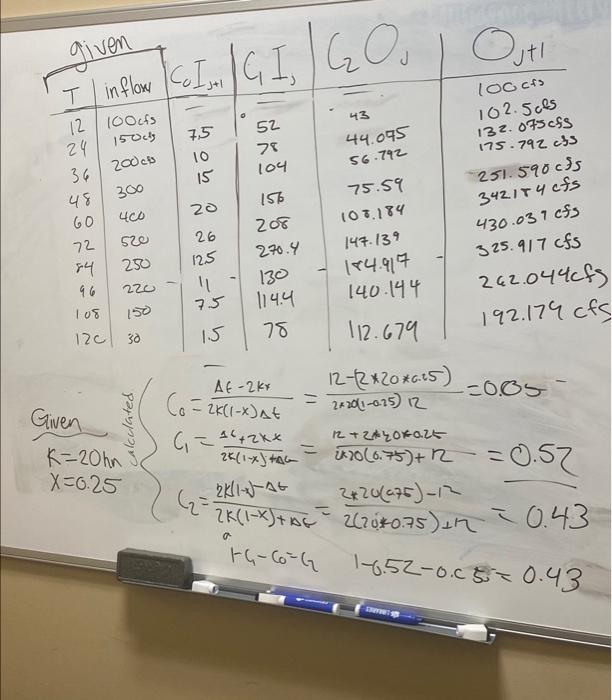 given
T | inflow | C₀I_J+1 | C₁I_J | C₂O_J | O_J+1
12 100cfs 100 cfs
24 150cfs 7.5 52 43 102.5cfs
36 200cfs 10 78 44.075 132.075cfs
48 300 15 104 56.792 175.792 cfs
60 400 20 156 75.59 251.590 cfs
72 520 26 208 108.184 342184 cfs
84 250 12.5 270.4 147.139 430.039 cfs
96 220 11 130 184.917 325.917 cfs
108 150 7.5 114.4 140.144 262.044cfs
120 30 1.5 78 112.679 192.179 cfs
Given
K=20hr
X=0.25
calculated
C₀ = Δt-2kx / 2k(1-x)Δt = 12-(2*20*0.25) / 2*20(1-0.25) 12 = 0.05
C₁ = Δt+2kx / 2k(1-x)+Δt = 12+2*20*0.25 / 2*20(0.75)+12 = 0.52
C₂ = 2k(1-x)-Δt / 2k(1-x)+Δt = 2*20(0.75)-12 / 2(20*0.75)+12 = 0.43
1-C₁-C₀=C₂ 1-0.52-0.05=0.43